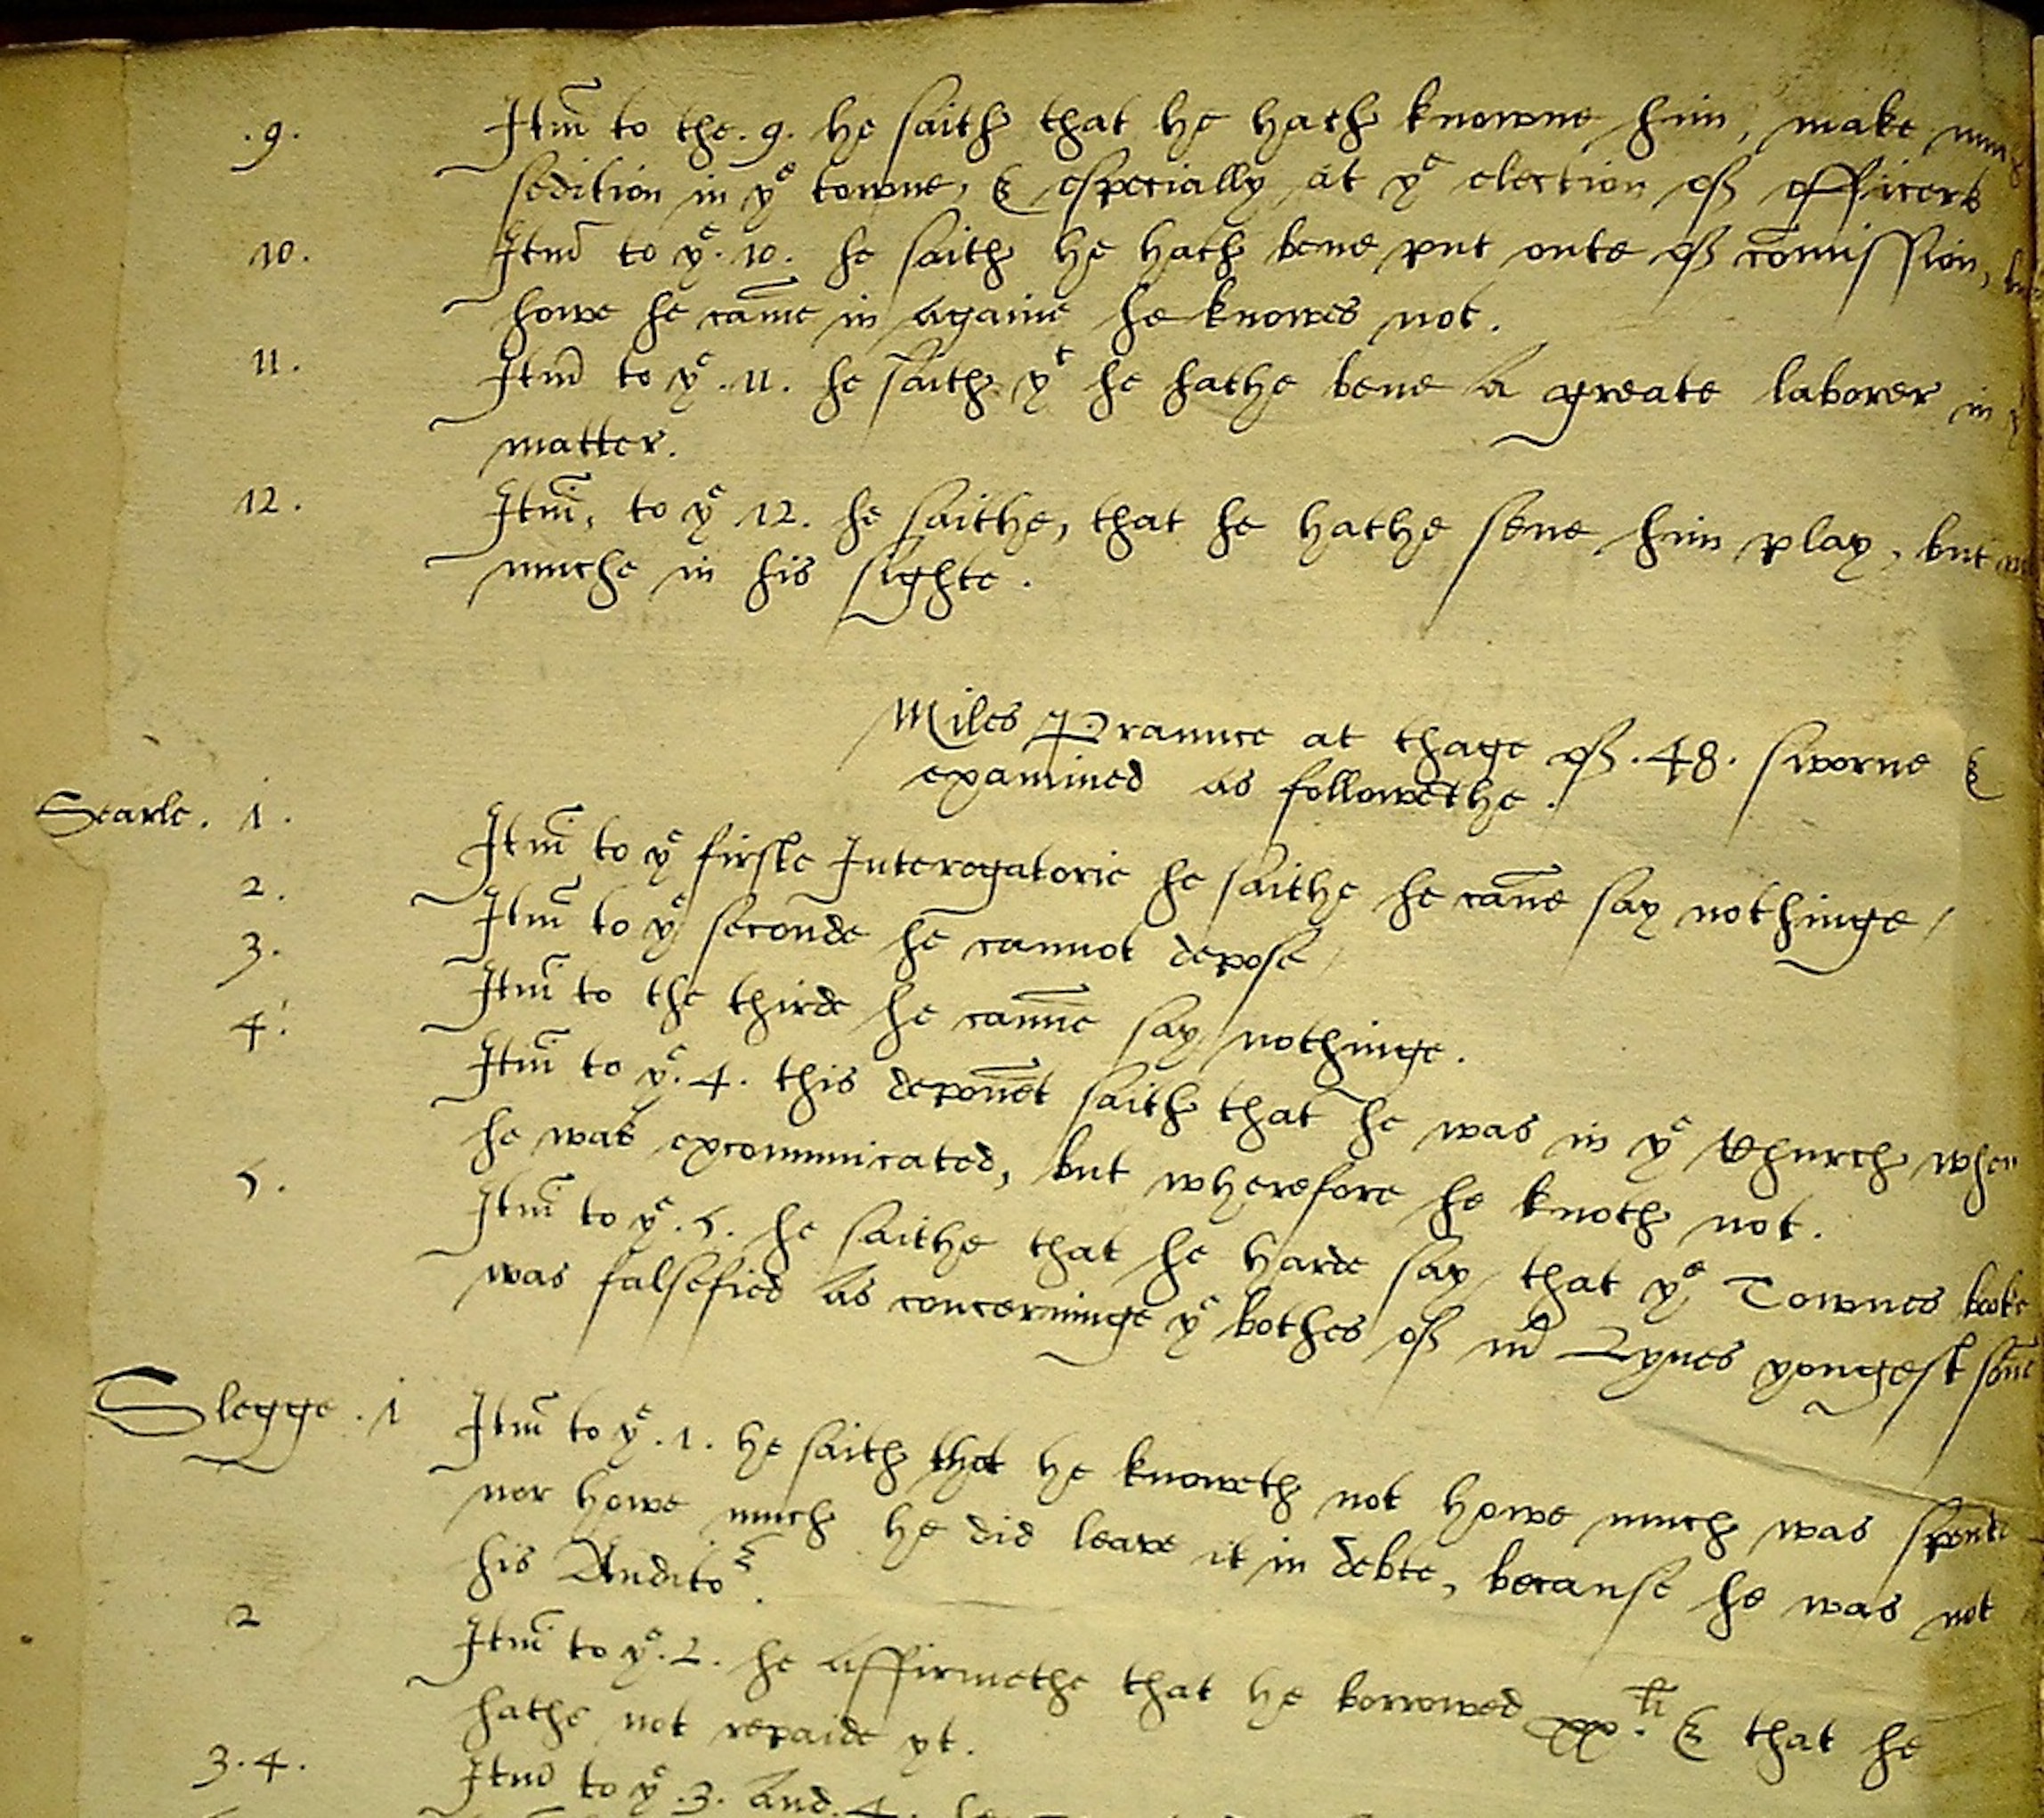 .9. Itm̃ to the .9. he saith that he hath knowne him, make
sedition in ye towne, & especially at ye election of officers
10. Itm̃ to ye .10. he saith he hath bene put oute of com̃ission,
howe he cam̃e in againe he knowes not.
11. Itm̃ to ye .11. he saith yt he hathe bene a greate laborer in
matter.
12. Itm̃, to ye 12. he saithe, that he hathe sene him play, but
muche in his sighte.
Miles Praunce at thage of .48. sworne &
examined as followethe.
Searle. 1. Itm̃ to ye firste Interogatorie he saithe he can̄e say nothinge,
2. Itm̃ to ye seconde he cannot depose,
3. Itm̃ to the thirde he cann̄e say nothinge.
4. Itm̃ to ye .4. this depon̄et saith that he was in ye Church when
he was excommunicated, but wherefore he knoth not.
5. Itm̃ to ye .5. he saithe that he harde say, that ye Townes booke
was falsefied as concerninge ye bothes of mr Lynes yongest son̄e
Slegge .1 Itm̃ to ye .1. he saith that he knoweth not howe much was spente
nor howe much he did leave it in debte, because he was not
his Auditor.
2 Itm̃ to ye .2. he affirmethe that he borrowed xx.li & that he
hathe not repaide yt.
3.4. Itm̃ to ye .3. And .4.